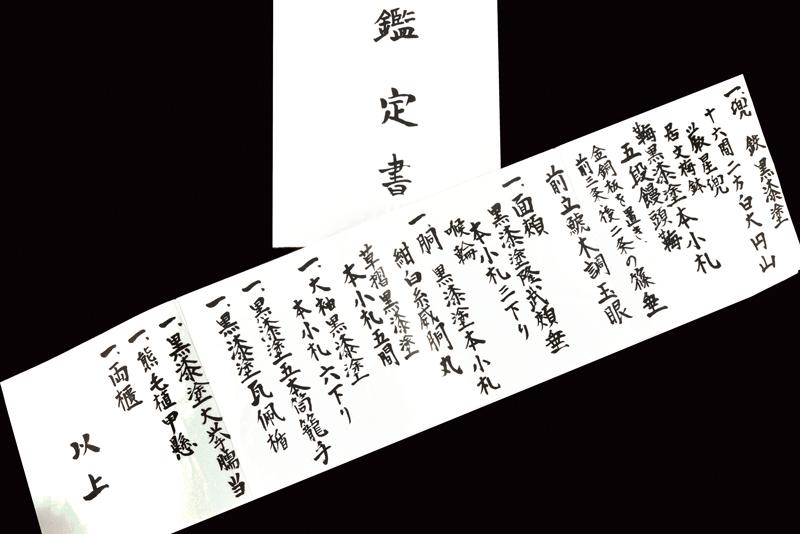 鑑定書
一、兜 鉄黒漆塗
十六間二方白大円山
厳星兜
居文荷鉢
鞠黒漆塗本小札
五段饅頭鞠
金銅板を置き、
前三条後二条の篠垂
前立 木調玉眼
一、面頬
黒漆塗隆武頬垂
本小札三下り
喉輪 黒漆塗本小札
一、胴
紺白糸威胴丸
草摺黒漆塗
本小札五間
一、大袖黒漆塗
本小札六下り
一、黒漆塗五本筒籠手
一、黒漆塗瓦佩楯
一、黒漆塗大挙臑当
一、熊毛植甲懸
一、両櫃
以上